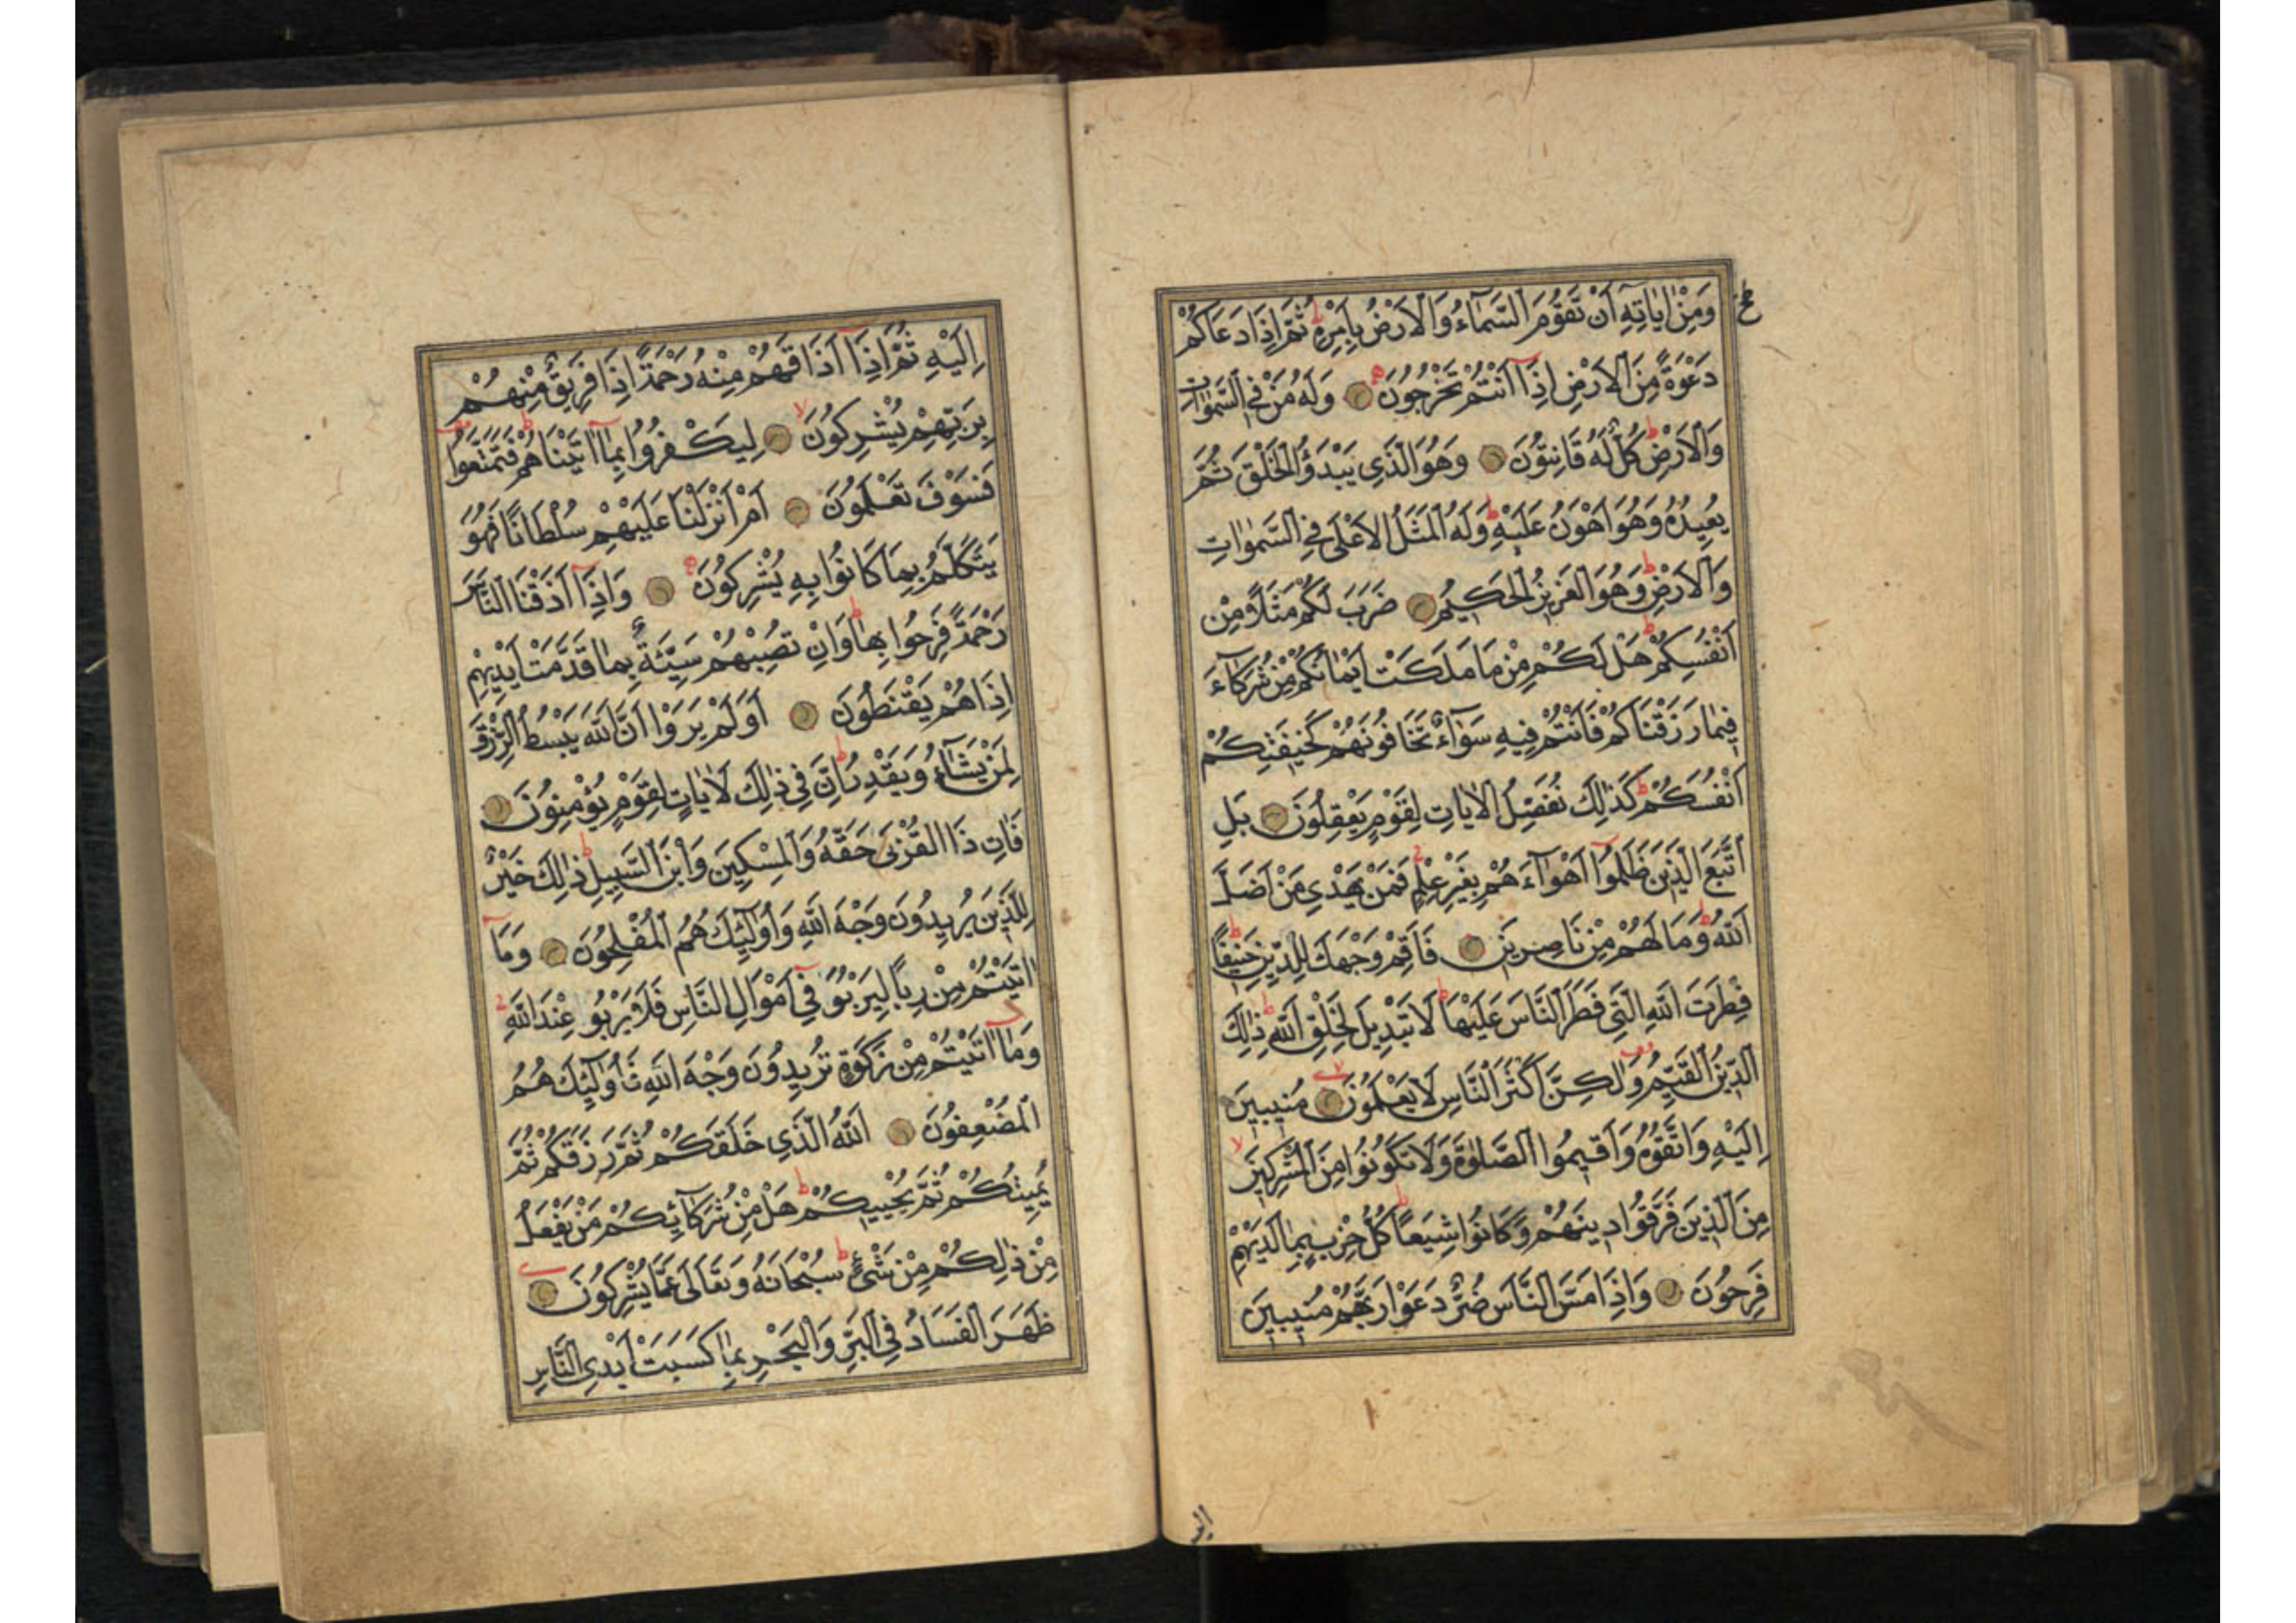 وَمِنْ اٰيَاتِهِ اَنْ تَقُومَ السَّمَآءُ وَالْاَرْضُ بِاَمْرِهِ ط ثُمَّ اِذَا دَعَاكُمْ
دَعْوَةً مِنَ الْاَرْضِ اِذَا اَنْتُمْ تَخْرُجُونَ وَلَهُ مَنْ فِي السَّمٰوَاتِ
وَالْاَرْضِ ط كُلٌّ لَهُ قَانِتُونَ وَهُوَ الَّذِي يَبْدَؤُا الْخَلْقَ ثُمَّ
يُعِيدُهُ وَهُوَ اَهْوَنُ عَلَيْهِ ط وَلَهُ الْمَثَلُ الْاَعْلَى فِي السَّمٰوَاتِ
وَالْاَرْضِ ط وَهُوَ الْعَزِيزُ الْحَكِيمُ ضَرَبَ لَكُمْ مَثَلًا مِنْ
اَنْفُسِكُمْ ط هَلْ لَكُمْ مِنْ مَا مَلَكَتْ اَيْمَانُكُمْ مِنْ شُرَكَآءَ
فِيمَا رَزَقْنَاكُمْ فَاَنْتُمْ فِيهِ سَوَآءٌ تَخَافُونَهُمْ كَخِيفَتِكُمْ
اَنْفُسَكُمْ ط كَذٰلِكَ نُفَصِّلُ الْاٰيَاتِ لِقَوْمٍ يَعْقِلُونَ بَلِ
اتَّبَعَ الَّذِينَ ظَلَمُوا اَهْوَآءَهُمْ بِغَيْرِ عِلْمٍ ج فَمَنْ يَهْدِي مَنْ اَضَلَّ
اللّٰهُ ط وَمَا لَهُمْ مِنْ نَاصِرِينَ فَاَقِمْ وَجْهَكَ لِلدِّينِ حَنِيفًا ط
فِطْرَتَ اللّٰهِ الَّتِي فَطَرَ النَّاسَ عَلَيْهَا ط لَا تَبْدِيلَ لِخَلْقِ اللّٰهِ ط ذٰلِكَ
الدِّينُ الْقَيِّمُ وَلٰكِنَّ اَكْثَرَ النَّاسِ لَا يَعْلَمُونَ مُنِيبِينَ
اِلَيْهِ وَاتَّقُوهُ وَاَقِيمُوا الصَّلٰوةَ وَلَا تَكُونُوا مِنَ الْمُشْرِكِينَ لا
مِنَ الَّذِينَ فَرَّقُوا دِينَهُمْ وَكَانُوا شِيَعًا ط كُلُّ حِزْبٍ بِمَا لَدَيْهِمْ
فَرِحُونَ وَاِذَا مَسَّ النَّاسَ ضُرٌّ دَعَوْا رَبَّهُمْ مُنِيبِينَ
اِلَيْهِ ثُمَّ اِذَا اَذَاقَهُمْ مِنْهُ رَحْمَةً اِذَا فَرِيقٌ مِنْهُمْ
بِرَبِّهِمْ يُشْرِكُونَ لا لِيَكْفُرُوا بِمَا اٰتَيْنَاهُمْ ط فَتَمَتَّعُوا
فَسَوْفَ تَعْلَمُونَ اَمْ اَنْزَلْنَا عَلَيْهِمْ سُلْطَانًا فَهُوَ
يَتَكَلَّمُ بِمَا كَانُوا بِهِ يُشْرِكُونَ وَاِذَا اَذَقْنَا النَّاسَ
رَحْمَةً فَرِحُوا بِهَا ط وَاِنْ تُصِبْهُمْ سَيِّئَةٌ بِمَا قَدَّمَتْ اَيْدِيهِمْ
اِذَا هُمْ يَقْنَطُونَ اَوَلَمْ يَرَوْا اَنَّ اللّٰهَ يَبْسُطُ الرِّزْقَ
لِمَنْ يَشَآءُ وَيَقْدِرُ ط اِنَّ فِي ذٰلِكَ لَاٰيَاتٍ لِقَوْمٍ يُؤْمِنُونَ
فَاٰتِ ذَا الْقُرْبَى حَقَّهُ وَالْمِسْكِينَ وَابْنَ السَّبِيلِ ط ذٰلِكَ خَيْرٌ
لِلَّذِينَ يُرِيدُونَ وَجْهَ اللّٰهِ وَاُولٰٓئِكَ هُمُ الْمُفْلِحُونَ وَمَا
اٰتَيْتُمْ مِنْ رِبًا لِيَرْبُوَا فِي اَمْوَالِ النَّاسِ فَلَا يَرْبُوا عِنْدَ اللّٰهِ ج
وَمَا اٰتَيْتُمْ مِنْ زَكٰوةٍ تُرِيدُونَ وَجْهَ اللّٰهِ فَاُولٰٓئِكَ هُمُ
الْمُضْعِفُونَ اَللّٰهُ الَّذِي خَلَقَكُمْ ثُمَّ رَزَقَكُمْ ثُمَّ
يُمِيتُكُمْ ثُمَّ يُحْيِيكُمْ ط هَلْ مِنْ شُرَكَآئِكُمْ مَنْ يَفْعَلُ
مِنْ ذٰلِكُمْ مِنْ شَيْءٍ ط سُبْحَانَهُ وَتَعَالَى عَمَّا يُشْرِكُونَ
ظَهَرَ الْفَسَادُ فِي الْبَرِّ وَالْبَحْرِ بِمَا كَسَبَتْ اَيْدِي النَّاسِ